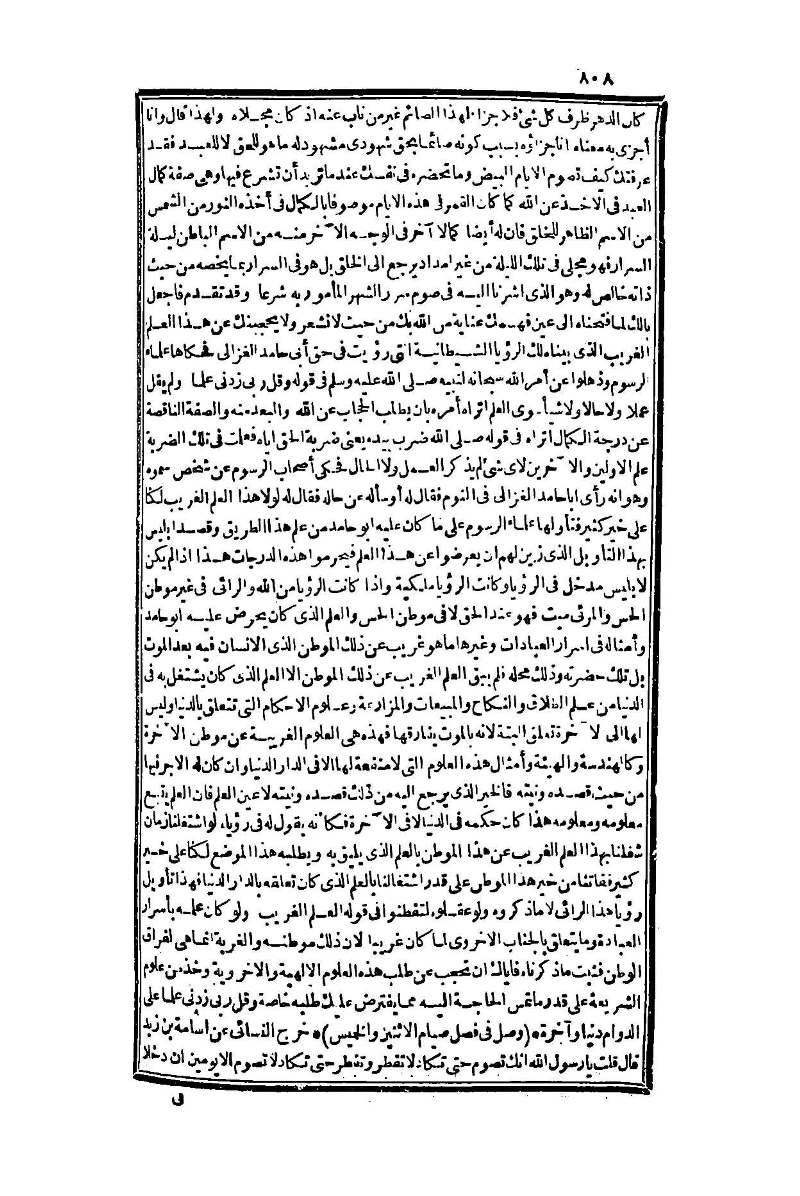 ٨٠٨
كان الدهر ظرف كل شئ فلا جزاء لهذا الصائم غير من ناب عنه اذ كان مجلاه ولهذا قال وانا
أجزى به معناه انا جزاؤه بسبب كونه صائما بحق شهودى مشهود له ما هو للحق لا للعبد فقد
عرفتك كيف تصوم الايام البيض وما تحضره فى نفسك عند ما تريد أن تشرع فيها وهى صفة كمال
العبد فى الاخذ عن الله كما كان القمر فى هذه الايام موصوفا بالكمال فى أخذه النور من الشمس
من الاسم الظاهر للخلق فان له أيضا كمالا آخر فى الوجه الآخر منه من الاسم الباطن ليلة
السرار فهو مجلى فى تلك الليلة من غير امداد يرجع الى الخلق بل هو فى السرار بما يخصه من حيث
ذاته خالص له وهو الذى اشرنا اليه فى صوم سرر الشهر المأمور به شرعا وقد تقدم فاجعل
بالك لما فتحناه الى عين فهمك عناية من الله بك من حيث لا تشعر ولا يحجبنك عن هذا العلم
الغريب الذى بيناه لك الرؤيا الشيطانية التى رؤيت فى حق أبى حامد الغزالى فحكاها علماء
الرسوم وذهلوا عن أمر الله سبحانه لنبيه صلى الله عليه وسلم فى قوله وقل رب زدنى علما ولم يقل
عملا ولا حالا ولا شيأ سوى العلم اتراه أمره بان يطلب الحجاب عن الله والبعد منه والصفة الناقصة
عن درجة الكمال أتراه فى قوله صلى الله ضرب بيده يعنى ضربة الحق اياه فعلمت فى تلك الضربة
علم الاولين والآخرين لاى شئ لم يذكر العمل ولا الحال فحكى أصحاب الرسوم عن شخص سموه
وهو انه رأى ابا حامد الغزالى فى النوم فقال له أو سأله عن حاله فقال له لولا هذا العلم الغريب لكنا
على خير كثير فتأولها علماء الرسوم على ما كان عليه ابو حامد من علم هذا الطريق وقصد ابليس
بهذا التأويل الذى زين لهم ان يعرضوا عن هذا العلم فيحرموا هذه الدرجات هذا اذا لم يكن
لابليس مدخل فى الرؤيا وكانت الرؤيا ملكية واذا كانت الرؤيا من الله والرائى فى غير موطن
الحس والمرئى ميت فهو عند الحق لا فى موطن الحس والعلم الذى كان يحرض عليه ابو حامد
وأمثاله فى اسرار العبادات وغيرها ما هو غريب عن ذلك الموطن الذى الانسان فيه بعد الموت
بل تلك حضرته وذلك محله فلم يبق العلم الغريب عن ذلك الموطن الا العلم الذى كان يشتغل به فى
الدنيا من علم الطلاق والنكاح والمبيعات والمزارعة وعلوم الاحكام التى تتعلق بالدنيا وليس
لها الى الآخرة تعلق البتة لانه بالموت يفارقها فهذه هى العلوم الغريبة عن موطن الآخرة
وكالهندسة والهيئة وأمثال هذه العلوم التى لا منفعة لها الا فى الدار الدنيا وان كان له الاجر فيها
من حيث قصده ونيته فالخير الذى يرجع اليه من ذلك قصده ونيته لا عين العلم فان العلم يتبع
معلومه ومعلومه هذا كان حكمه فى الدنيا لا فى الآخرة فكانه يقول له فى رؤياه لو اشتغلنا زمان
شغلنا بهذا العلم الغريب عن هذا الموطن بالعلم الذى يليق به ويطلبه هذا الموضع لكنا على خير
كثير ففاتنا من خير هذا الموطن على قدر اشتغالنا بالعلم الذى كان تعلقه بالدار الدنيا فهذا تأويل
رؤيا هذا الرائى لا ما ذكروه ولو عقلوه لتفطنوا فى قوله العلم الغريب ولو كان علمه بأسرار
العبادة وما يتعلق بالجناب الاخروى لما كان غريبا لان ذلك موطنه والغربة انما هى لفراق
الوطن فثبت ما ذكرناه فاياك ان تحجب عن طلب هذه العلوم الالهية والاخروية وخذ من علوم
الشريعة على قدر ما تمس الحاجة اليه مما يفترض عليك طلبه خاصة وقل رب زدنى علما على
الدوام دنيا وآخرة (وصل فى فصل صيام الاثنين والخميس) خرج النسائى عن اسامة بن زيد
قال قلت يا رسول الله انك تصوم حتى تكاد لا تفطر وتفطر حتى تكاد لا تصوم الا يومين ان دخلا
فى